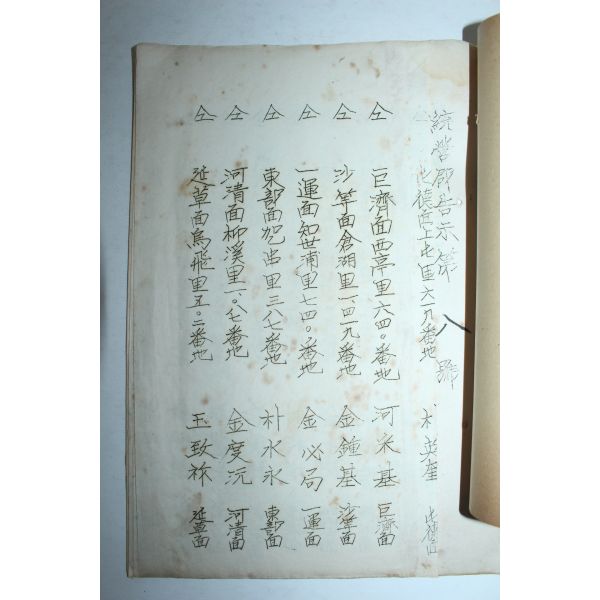 統營郡告示第八號
仝 巨濟面西亭里六四〇番地 河采基 巨濟面
仝 沙等面倉湖里一四一九番地 金鍾基 沙等面
仝 一運面知世浦里七四〇番地 金必局 一運面
仝 東部面 里三八七番地 朴水永 東部面
仝 河淸面柳溪里一〇八七番地 金度沅 河淸面
仝 延草面烏飛里五〇二番地 玉致祚 延草面